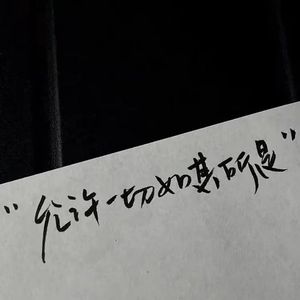 "允许一切如其所是"